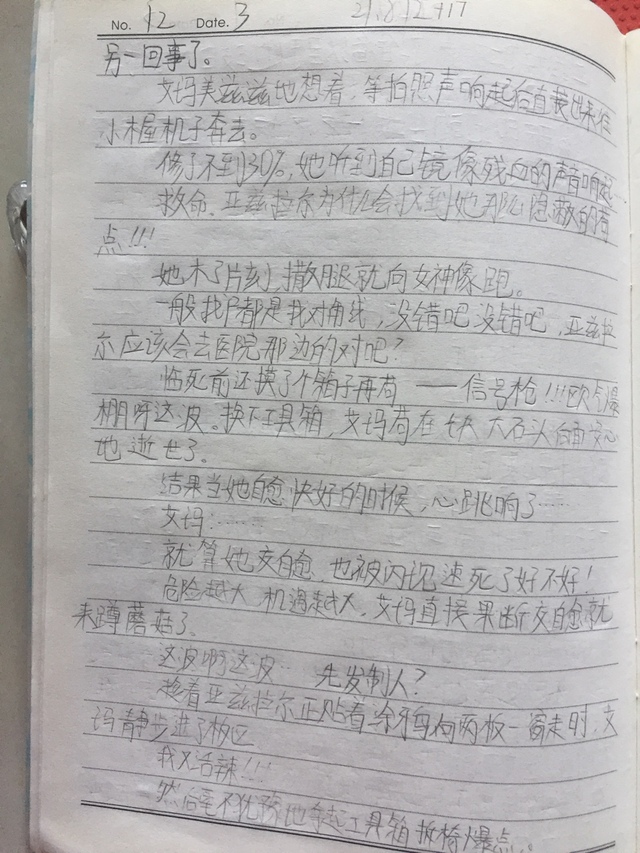 No. 12 Date. 3 21.8.12 +17
另一回事了。
艾玛美滋滋地想着,等拍照声响起后直接出来往
小木屋机子奔去。
修了不到30%,她听到自己镜像残血的声音响起…
救命,亚兹拉尔为什么会找到她那么隐蔽的苟
点!!!
她木了片刻,撒腿就向女神像跑。
一般找P都是找对角线,没错吧没错吧,亚兹拉
尔应该会去医院那边的对吧?
临死前还摸了个箱子再苟——信号枪!!!欧气爆
棚呀这波。换下工具箱,艾玛苟在大石头后面安心
地逝世了。
结果当她自愈快好的时候,心跳响了……
艾玛:……
就算她交自愈,也被闪现速死了好不好!
危险越大,机遇越大,艾玛直接果断交自愈就
来蹲蘑菇了。
这波啊这波…先发制人?
趁着亚兹拉尔正贴着 两板一窗走时,艾
玛静步进了板区
我又活辣!!!
然后毫不犹豫地拿起工具箱拆椅爆点。